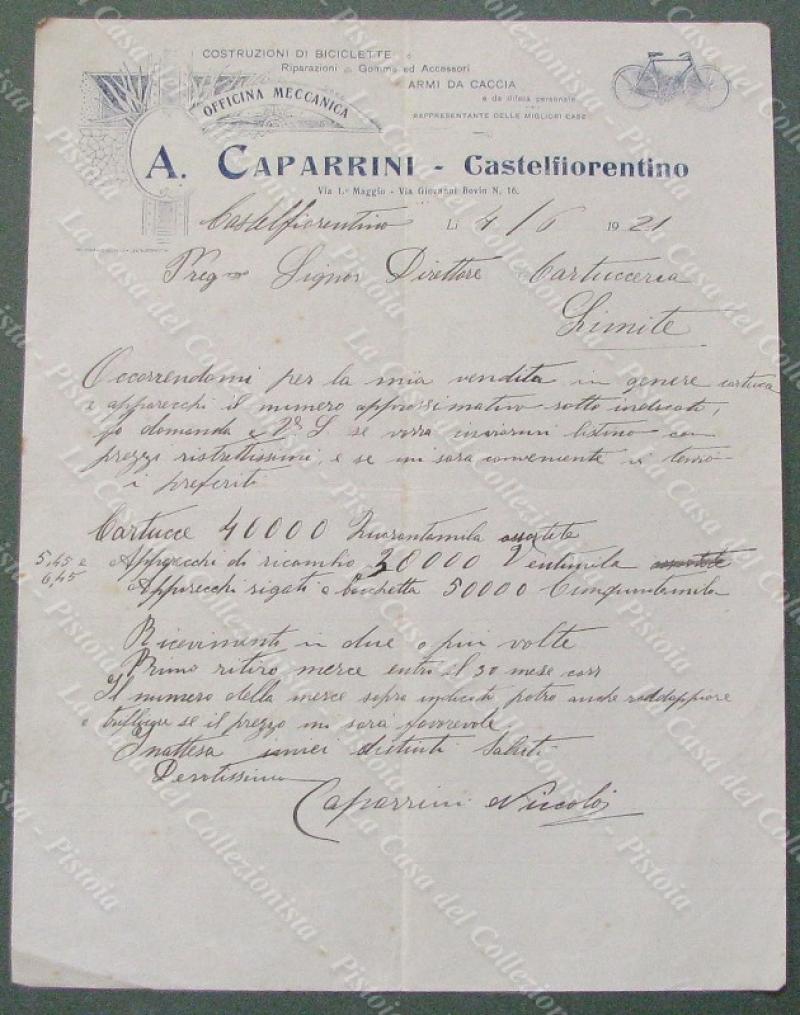 COSTRUZIONI DI BICICLETTE e
Riparazioni - Gomme ed Accessori
ARMI DA CACCIA
e da difesa personale
RAPPRESENTANTE DELLE MIGLIORI CASE
OFFICINA MECCANICA
A. CAPARRINI - Castelfiorentino
Via 1.° Maggio - Via Giovanni Bovio N. 16.
Castelfiorentino Li 4/6 1921
Preg Signor Direttore Cartucceria
Limite
Occorrendomi per la mia vendita in genere cartucce
e apparecchi il numero approssimativo sotto indicati,
fo domanda a V. S. se vorrà inviarmi listino con
prezzi ristrettissimi, e se mi sara conveniente vi terrò
i preferiti
Cartucce 40000 Quarantamila assortite
5,45 e Apparecchi di ricambio 20000 Ventimila assortite
6,45 Apparecchi rigati a bacchetta 50000 Cinquantamila
Ricevimenti in due o più volte
Primo ritiro merce entro il 30 mese corr
Il numero della merce sopra indicati potrò anche raddoppiare
o se il prezzo mi sarà favorevole.
Inattesa distinti Saluti
Devotissimo
Caparrini Niccolò
La Casa del Collezionista - Pistoia